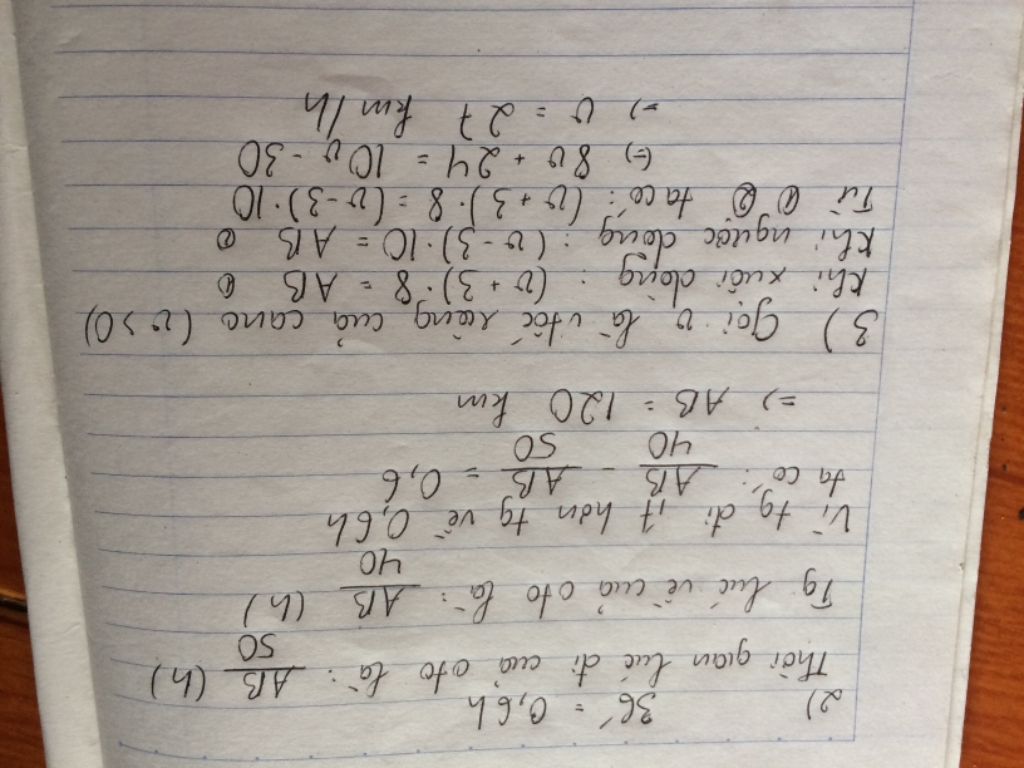 2) 36' = 0,6h
Thời gian lúc đi của oto là: AB/50 (h)
Tg lúc về của oto là: AB/40 (h)
Vì tg đi ít hơn tg về 0,6h
ta có: AB/40 - AB/50 = 0,6
=> AB = 120 km
3) Gọi v là vtốc riêng của cano (v>0)
Khi xuôi dòng: (v+3).8 = AB
Khi ngược dòng: (v-3).10 = AB
Từ ① ② ta có: (v+3).8 = (v-3).10
(=) 8v + 24 = 10v - 30
=> v = 27 km/h